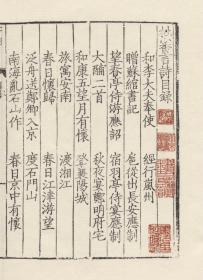 杜審言詩目錄
和李大夫奉使 經行嵐州
贈蘇綰書記 扈從出長安應制
望春亭侍游應詔 宿羽亭侍宴應制
大酺二首 秋夜宴鄭明府宅
和康五望月有懷 登襄陽城
旅寓安南 渡湘江
春日懷歸 春日江津游望
泛舟送鄭卿入京 度石門山
南海亂石山作 春日京中有懷